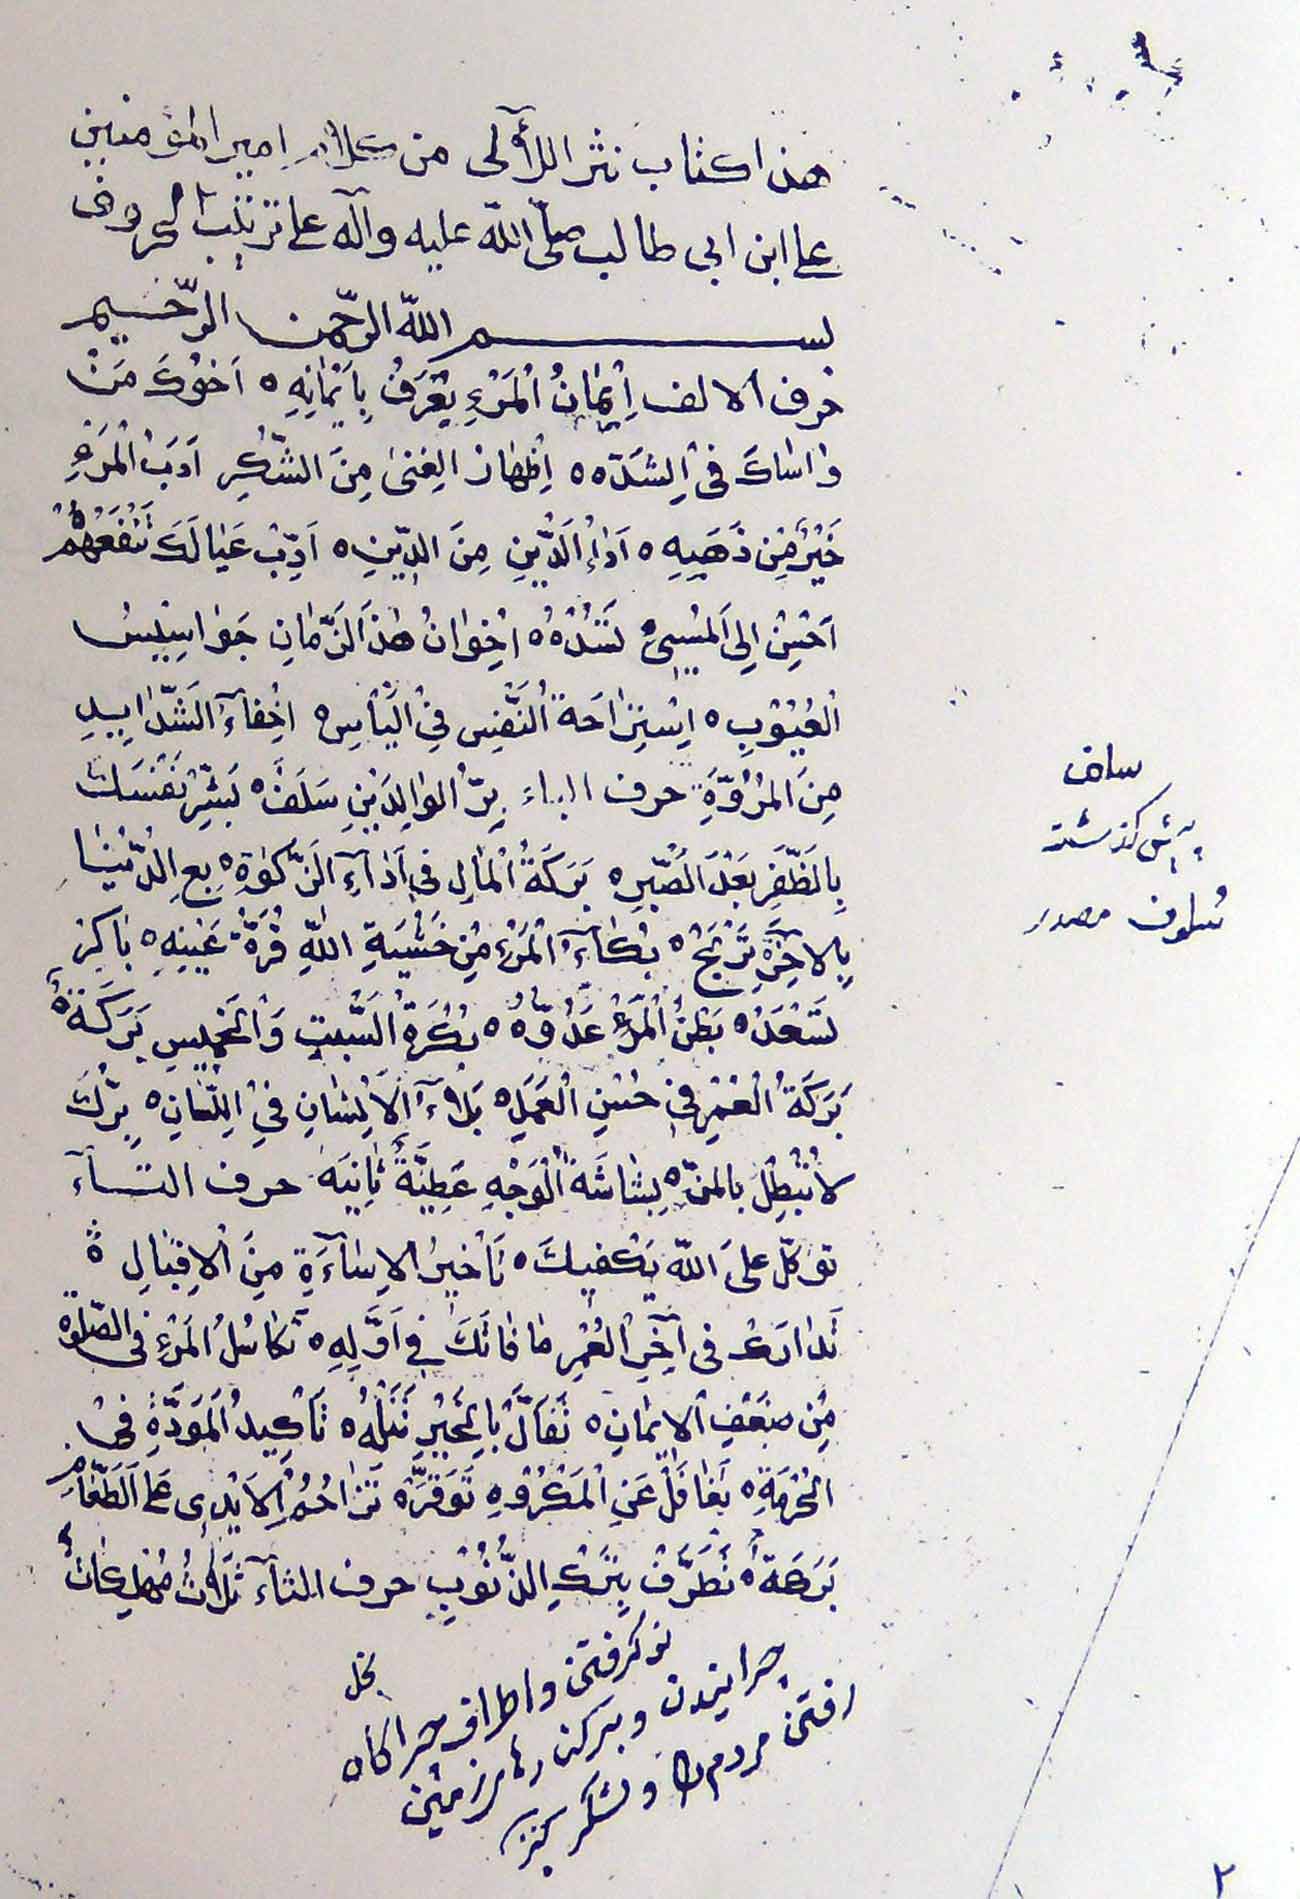 هذا كتاب نثر اللآلى من كلام امير المؤمنين
على ابن ابى طالب صلّى اللّه عليه وآله على ترتيب الحروف
بسم اللّه الرّحمن الرّحيم
حرف الالف اِيمٰانُ الْمَرْءِ يُعْرَفُ بِاَيْمٰانِهِ ٥ اَخُوكَ مَنْ
وٰاسٰاكَ فى الِشدّة ٥ اِظْهٰارُ الغِنىٰ مِنَ الشُّكْرِ اَدَبُ الْمَرْءِ
خَيْرٌ مِنْ ذَهَبِهِ ٥ اَدٰاءُ الَدَّيْنِ مِنَ الدِّينِ ٥ اَدِّبْ عَيٰالَكَ تَنْفَعُهُمْ
اَحْسِنْ اِلىَ الْمُسِىْءِ تَسُدْهُ ٥ اِخْوٰانُ هٰذَا الزَّمٰانِ جَوٰاسِيسُ
الْعُيُوْبِ ٥ اِسْتِرٰاحَةُ النَّفْسِ فِى الْيَأسِ ٥ اِخْفآءُ الشَّدٰايِدِ
مِنَ الْمُرُوَّةِ حرف الباء بِرُّ الوٰالِدَيْنِ سَلَفٌ ٥ بَشِّرْ نَفْسَكَ
بِالظَّفَرِ بَعْدَ الصَّبْرِ ٥ بَرَكَةُ الْمٰالِ فى اَدٰآءِ الزَّكٰوةِ ٥ بِعِ الدُّنْيٰا
بِالاٰخِرَةِ تَرْبَحْ ٥ بُكٰآءُ الْمَرْءِ مِنْ خَشْيَةِ اللّهِ قُرَّةُ عَيْنِهِ ٥ بٰاكِرْ
تَسْعَدْ ٥ بَطْنُ الْمَرْءِ عَدُوُّهُ ٥ بُكْرَةُ السَّبْتِ وَالْخَمِيسِ بَرَكَةٌ ٥
بَرَكَةُ الْعُمْرِ فى حُسْنِ الْعَمَلِ ٥ بَلٰآءُ الْاِنْسٰانِ فِى الِلّسٰانِ ٥ بِرَّكَ
لاٰ تُبْطِلْ بالمنّ ٥ بِشٰاشَةُ الْوَجْهِ عَطِيَّةٌ ثٰانِيَة حرف التآء
توكّل علىَ اللّه يَكْفِيكَ ٥ تَأخيرُ الاِسٰآءَةِ مِنَ الْاِقْبٰالِ ٥
تَدٰارَكْ فى آخِرِ الْعُمْرِ مٰا فٰاتَكَ فى اَوَّلِهِ ٥ تَكٰاسُلُ الْمَرْءِ فى الصّلٰوة
مِنْ ضَعْفِ الايمٰانِ ٥ تَفَأَّلْ بِالْخَيْرِ تَنَلْهُ ٥ تَأكِيدُ الْمَوَدَّةِ فىْ
الْحُرْمَةِ ٥ تَغٰافَلْ عَنِ الْمَكْرُوهِ تَوَقَّرْ ٥ تَزٰاحُمُ الاَيْدِى عَلىَ الطَّعٰامِ
بَرَكَةٌ ٥ تَطَرَّفْ بِتَرْكِ الذُّنُوْبِ حرف الثآء ثَلٰاثُ مُهْلِكٰاتٌ
سلف
پيش گذشته
سلوف مصدر
نو گرفتن و اطراف چراگاه
چرانيدن و بر كناره زمين
رفتن مردم را و لشگر
بخل
٢